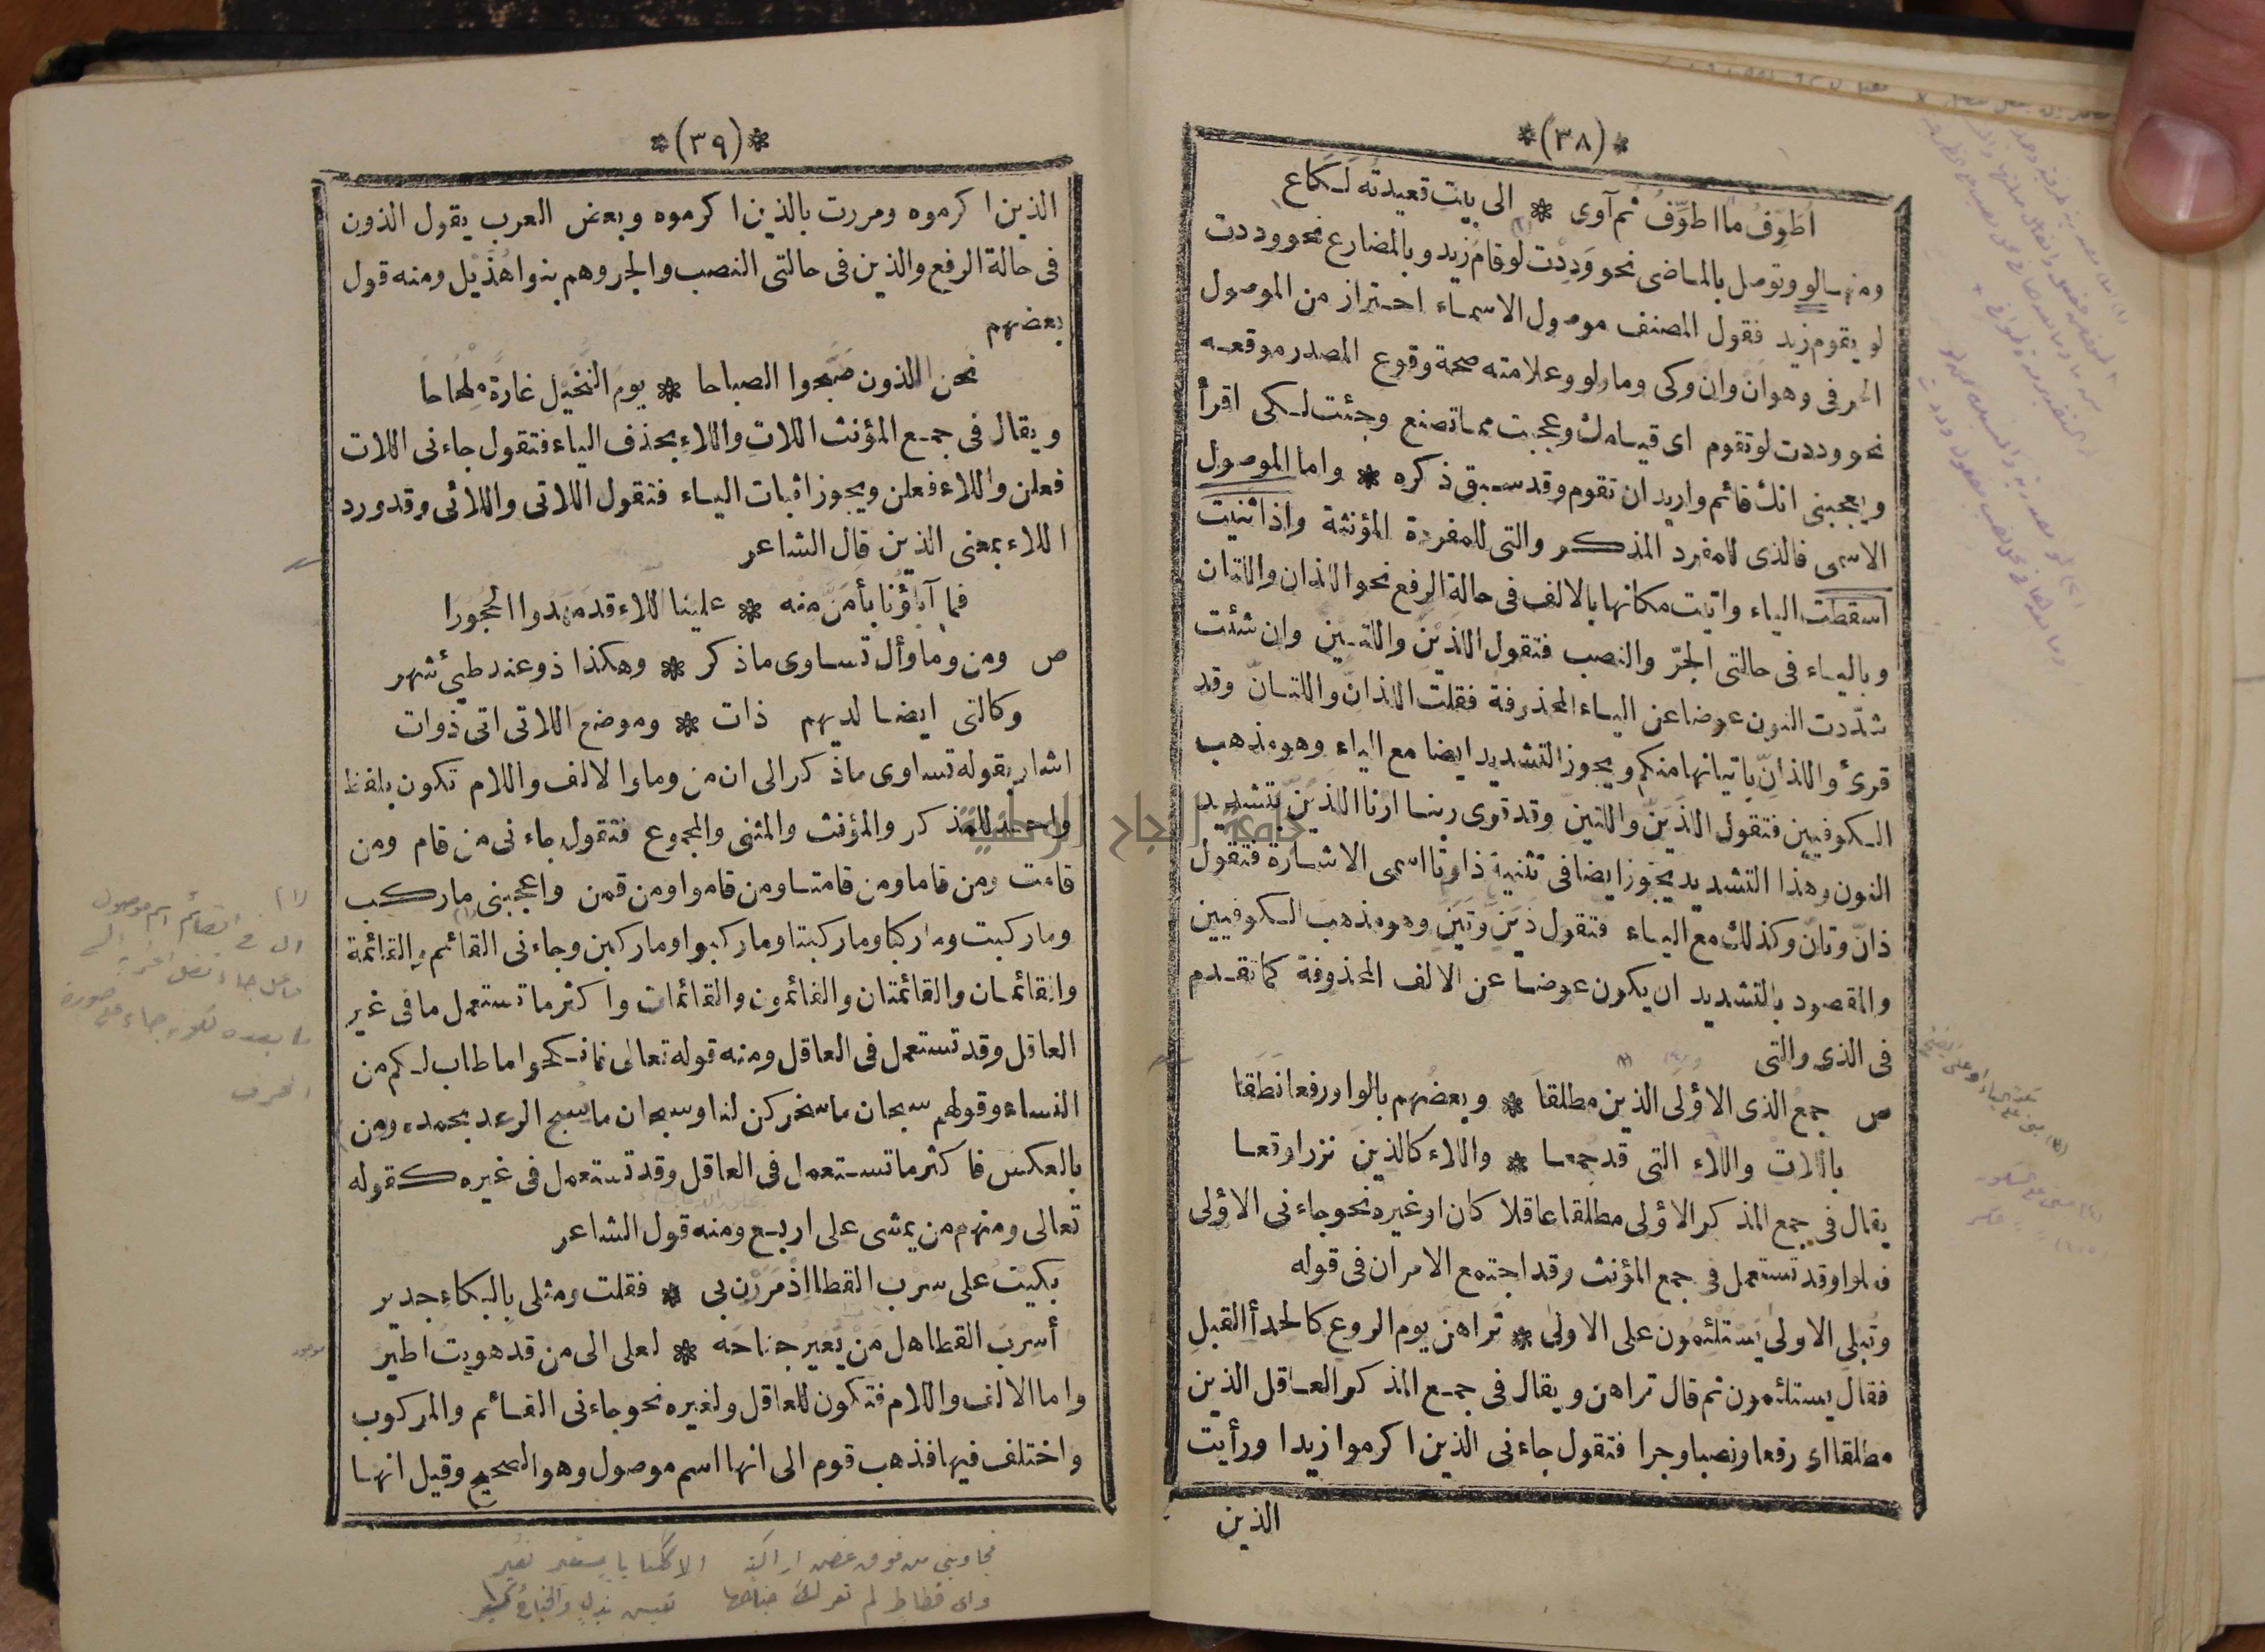 *(٣٨)*
اُطَوِّفُ ما اطوِّفُ ثم آوى * الى بيتٍ قعيدتُه لَكَاعِ
ومنها لو وتوصل بالماضى نحو وَدِدْت لو قام زيد وبالمضارع نحو وددت
لو يقوم زيد فقول المصنف موصول الاسماء احتراز من الموصول
الحرفى وهو ان وان وكى وما ولو وعلامته صحة وقوع المصدر موقعه
نحو وددت لو تقوم اى قيامك وعجبت مما تصنع وجئت لكى اقرأ
ويعجبنى انك قائم واريد ان تقوم وقد سبق ذكره * واما الموصول
الاسمى فالذى للمفرد المذكر والتى للمفردة المؤنثة واذا ثنيت
اسقطت الياء واتيت مكانها بالالف فى حالة الرفع نحو اللذان واللتان
وبالياء فى حالتى الجرّ والنصب فتقول اللذَيْن واللتيْن وان شئت
شدّدت النون عوضا عن الياء المحذوفة فقلت اللذانّ واللتانّ وقد
قرئ واللذانّ يأتيانها منكم ويجوز التشديد ايضا مع الياء وهو مذهب
الكوفيين فتقول اللذَيْنّ واللتينّ وقد قرئ ربنا ارنا اللذَيْنّ بتشديد
النون وهذا التشديد يجوز ايضا فى تثنية ذا وتا اسمى الاشارة فتقول
ذانّ وتانّ وكذلك مع الياء فتقول ذَيْنّ وتَيْنّ وهو مذهب الكوفيين
والمقصود بالتشديد ان يكون عوضا عن الالف المحذوفة كما تقدم
فى الذى والتى
ص جمعُ الذى الاؤلى الذين مطلقا * وبعضُهم بالواو رفعا نَطَقَا
باللاتِ واللاءِ التى قد جُمعا * واللاء كالذينَ نزرا وقعا
يقال فى جمع المذكر الاؤلى مطلقا عاقلا كان او غيره نحو جاءنى الاؤلى
فعلوا وقد تستعمل فى جمع المؤنث وقد اجتمع الامران فى قوله
وتُبلى الاولى يَستَلئمُونَ على الاولى * تَراهنّ يوم الروعِ كالحِدَأ القُبلِ
فقال يستلئمون ثم قال تراهن ويقال فى جمع المذكر العاقل الذين
مطلقا اى رفعا ونصبا وجرا فتقول جاءنى الذين اكرموا زيدا ورأيت
الذين
*(٣٩)*
الذين اكرموه ومررت بالذين اكرموه وبعض العرب يقول الذون
فى حالة الرفع والذين فى حالتى النصب والجر وهم بنوا هُذَيْل ومنه قول
بعضهم
نحن اللذون صَبَّحوا الصباحا * يومَ النُّخَيْل غارةً مِلحَاحا
ويقال فى جمع المؤنث اللاتِ واللاءِ بحذف الياء فتقول جاءنى اللات
فعلن واللاء فعلن ويجوز اثبات الياء فتقول اللاتى واللائى وقد ورد
اللاء بمعنى الذين قال الشاعر
فما آباؤُنا بأَمَنَّ منه * علينا اللاء قد مَهَدوا الحُجُورَا
ص ومن وما وأل تساوى ما ذكر * وهكذا ذو عند طيئ شهر
وكالتى ايضا لديهم ذات * وموضع اللاتى اتى ذوات
اشار بقوله تساوى ما ذكر الى ان من وما والالف واللام تكون بلفظ
واحد للمذكر والمؤنث والمثنى والمجموع فتقول جاءنى من قام ومن
قامت ومن قاما ومن قامتا ومن قاموا ومن قمن واعجبنى ما ركب
وما ركبت وما ركبا وما ركبتا وما ركبوا وما ركبن وجاءنى القائم والقائمة
والقائمان والقائمتان والقائمون والقائمات واكثر ما تستعمل ما فى غير
العاقل وقد تستعمل فى العاقل ومنه قوله تعالى فانكحوا ما طاب لكم من
النساء وقولهم سبحان ما سخركن لنا وسبحان ما سبح الرعد بحمده ومن
بالعكس فاكثر ما تستعمل فى العاقل وقد تستعمل فى غيره كقوله
تعالى ومنهم من يمشى على اربع ومنه قول الشاعر
بَكَيْتُ على سِرْب القطا اذْ مَرَرْن بى * فقلت ومثلى بالبكاء جدير
أسِرْبَ القطا هل مَنْ يُعير جناحَه * لعلى الى من قد هويتُ اطير
واما الالف واللام فتكون للعاقل ولغيره نحو جاءنى القائم والمركوب
واختلف فيها فذهب قوم الى انها اسم موصول وهو الصحيح وقيل انها
فجاوبنى من فوق غصن اراكة الا كلنا يا مستعير نعير
واى قطاط لم تعرك جناحها
جامعة النجاح الوطنية